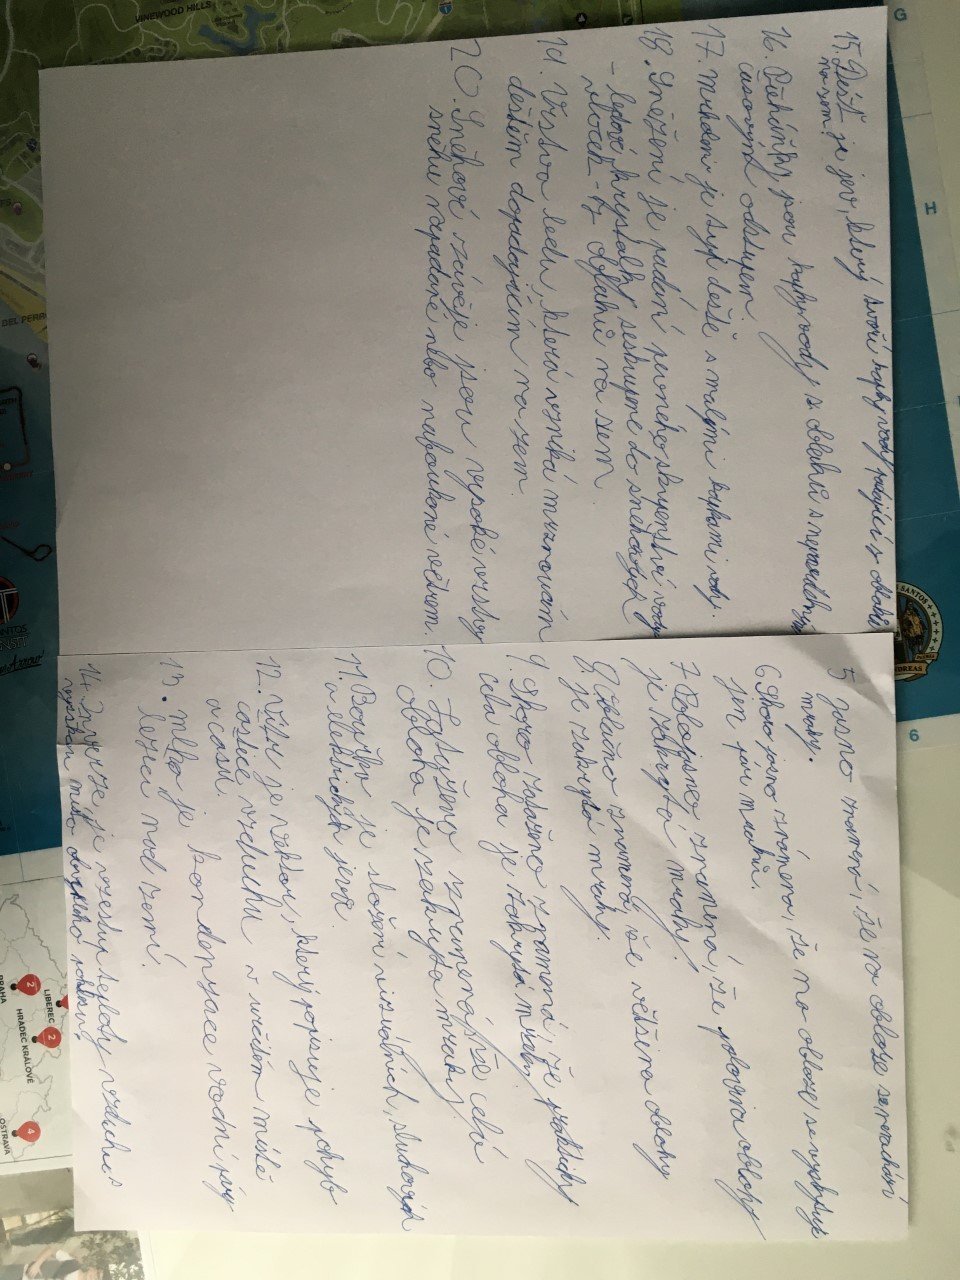 5 Jasno znamená, že na obloze se nenachází
mraky.
6. Skoro jasno znamená, že na obloze se vyskytuje
jen pár mraků.
7. Polojasno znamená, že polovina oblohy
je zakrytá mraky.
8. Oblačno znamená, že většina oblohy
je zakrytá mraky.
9. Skoro zataženo znamená, že prakticky
celá obloha je zakrytá mraky.
10. Zataženo znamená, že celá
obloha je zakryta mraky.
11. Bouřka je složení vizuálních, sluchových
a elektrických jevů.
12. Vítr je vektor, který popisuje pohyb
částice vzduchu v určitém místě
a času.
13. mlha je kondenzace vodní páry
ležící nad zemí.
14. Inverze je vzestup teploty vzduchu s
výškou místo obvyklého poklesu.
15. Déšť je jev, který tvoří kapky vody padající z oblaků
na zem.
16. Přeháňky jsou kapky vody z oblaků s nepravidelným
časovým odstupem.
17. Mrholení je typ deště s malými kapkami vody.
18. Sněžení je padání pevného skupenství vody
- ledové krystalky seskupené do sněhových
vloček - z oblaků na zem.
19. Vrstva ledu, která vzniká mrznoucím
deštěm dopadajícím na zem.
20. Sněhové závěje jsou vysoké vrstvy
sněhu napadané nebo nafoukané větrem.
VINEWOOD HILLS
DEL PERRO
G
I
6
SANTOS
ANDREAS
LIBEREC
2
PRAHA
2
HRADEC KRÁLOVÉ
4
OSTRAVA